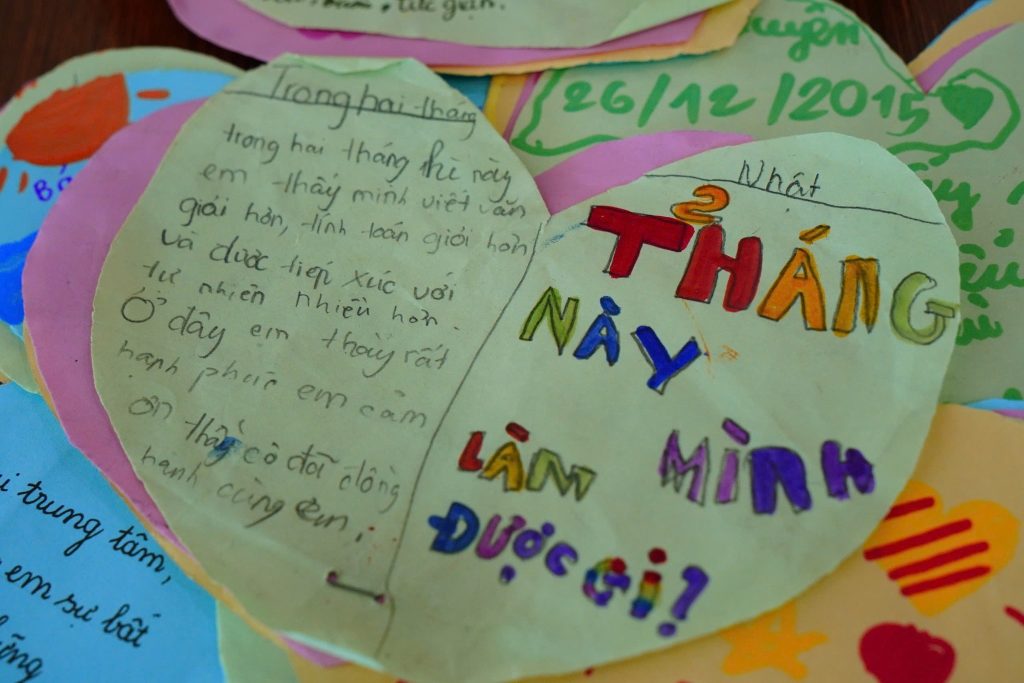 tức giận.
uyên
26/12/2015
Trong hai tháng
trong hai tháng hè này
em thấy mình viết văn
giỏi hơn, tính toán giỏi hơn
và được tiếp xúc với
tự nhiên nhiều hơn.
Ở đây em thấy rất
hạnh phúc em cảm
ơn thầy cô đã đồng
hành cùng em.
Nhật
2
THÁNG
NÀY
LÀM MÌNH
ĐƯỢC GÌ?
i trung tâm,
em sự bất